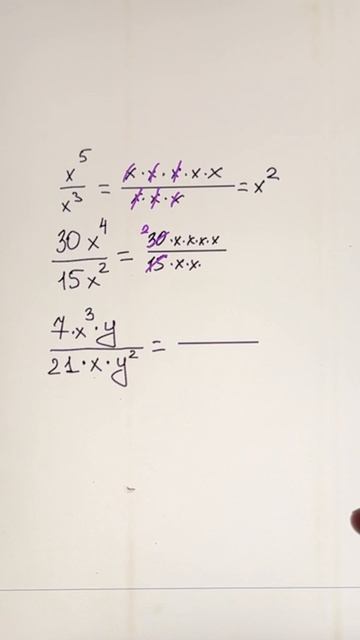 x⁵/x³ = x·x·x·x·x/x·x·x = x²
30x⁴/15x² = ² 30·x·x·x·x/15·x·x·
7·x³·y/21·x·y² =